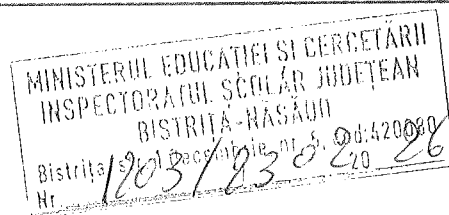 MINISTERUL EDUCAȚIEI ȘI CERCETĂRII
INSPECTORATUL ȘCOLAR JUDEȚEAN
BISTRIȚA-NĂSĂUD
Bistrița, nr. 5, Cod: 420080
Nr. 1203/23 02 20 26